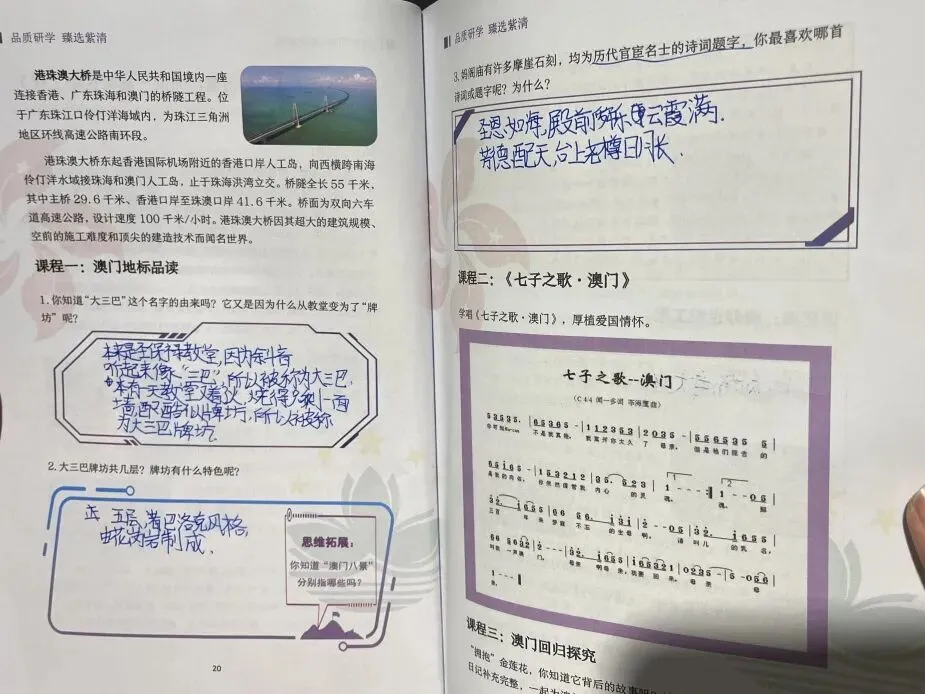 品质研学 臻选紫清
港珠澳大桥是中华人民共和国境内一座
连接香港、广东珠海和澳门的桥隧工程。位
于广东珠江口伶仃洋海域内，为珠江三角洲
地区环线高速公路南环段。
港珠澳大桥东起香港国际机场附近的香港口岸人工岛，向西横跨南海
伶仃洋水域接珠海和澳门人工岛，止于珠海洪湾立交。桥隧全长 55 千米，
其中主桥 29.6 千米、香港口岸至珠澳口岸 41.6 千米。桥面为双向六车
道高速公路，设计速度 100 千米/小时。港珠澳大桥因其超大的建筑规模、
空前的施工难度和顶尖的建造技术而闻名世界。
课程一：澳门地标品读
1. 你知道“大三巴”这个名字的由来吗？它又是因为什么从教堂变为了“牌
坊”呢？
本来是圣保禄教堂，因为
听起来像“三巴”，所以被称为大三巴，
有一天教堂烧得只剩一面
墙酷似牌坊，所以被称
为大三巴牌坊
2. 大三巴牌坊共几层？牌坊有什么特色呢？
五层，巴洛克风格，
由花岗岩制成．
思维拓展：
你知道“澳门八景”
分别指哪些吗？
20
品质研学 臻选紫清
3. 妈阁庙有许多摩崖石刻，均为历代官宦名士的诗词题字，你最喜欢哪首
诗词或题字呢？为什么？
圣恩如海，殿前云霞满．
德配天，台上日月长．
课程二：《七子之歌·澳门》
学唱《七子之歌·澳门》，厚植爱国情怀。
七子之歌--澳门
（C 4/4 闻一多词 李海鹰曲）
你可知Macau 不是我真姓， 我离开你太久了 母亲， 但是他们掠去的
是我的肉体， 你依然保管我 内心 的灵 魂。 魂。 那
三百 年来 梦寐 不忘 的生母啊， 请叫儿 的乳名，
叫我 一声澳门。 母亲 啊母亲，我要回来，母亲 母
亲。
课程三：澳门回归探究
“拥抱”金莲花，你知道它背后的故事吗
日记补充完整，一起为